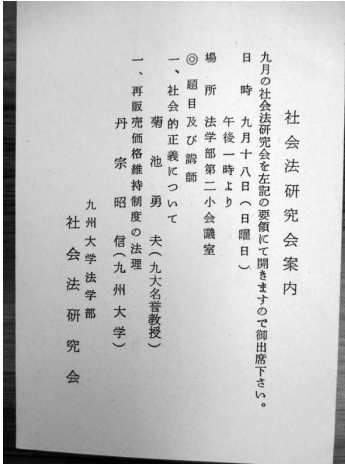 社会法研究会案内
九月の社会法研究会を左記の要領にて開きますので御出席下さい。
日時 九月十八日(日曜日)
午後一時より
場所 法学部第二小会議室
◎題目及び講師
一、社会的正義について
菊池勇夫(九大名誉教授)
一、再販売価格維持制度の法理
丹宗昭信(九州大学)
九州大学法学部
社会法研究会